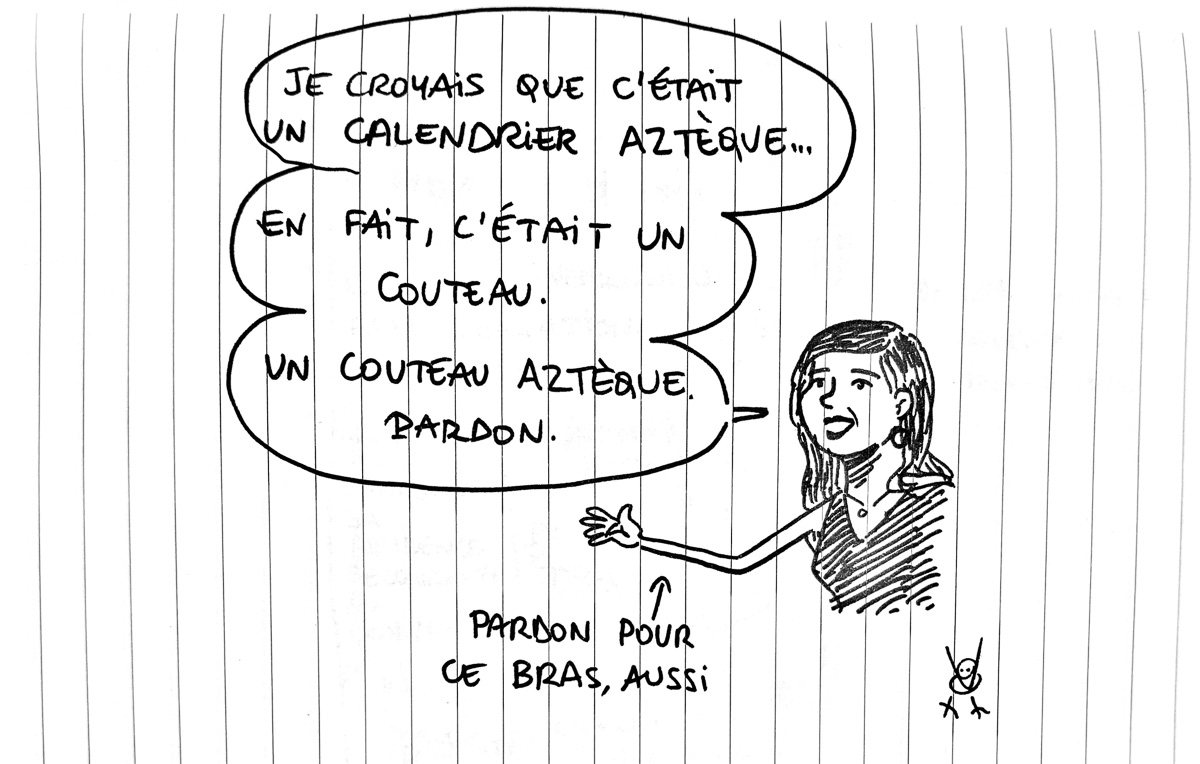 JE CROYAIS QUE C'ÉTAIT
UN CALENDRIER AZTÈQUE...
EN FAIT, C'ÉTAIT UN
COUTEAU.
UN COUTEAU AZTÈQUE.
PARDON.
PARDON POUR
CE BRAS, AUSSI